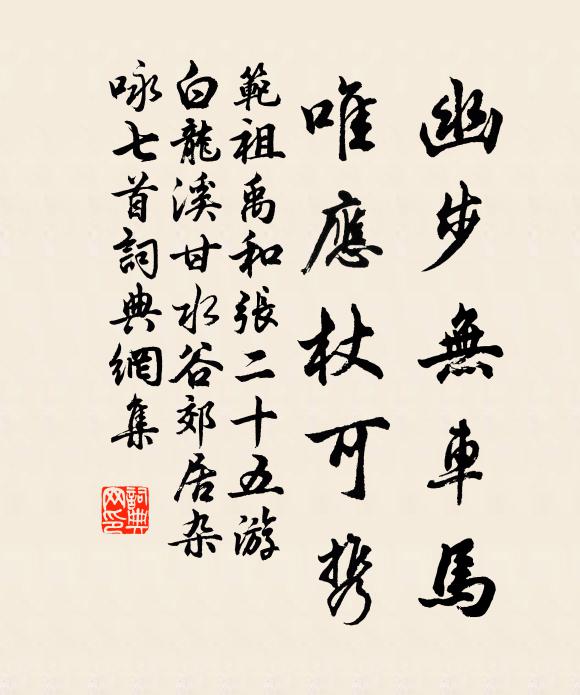 幽步無車馬
唯應杖可攜
範祖禹和張二十五游
白龍溪甘水谷郊居杂
咏七首詞典網集
詞典
网印